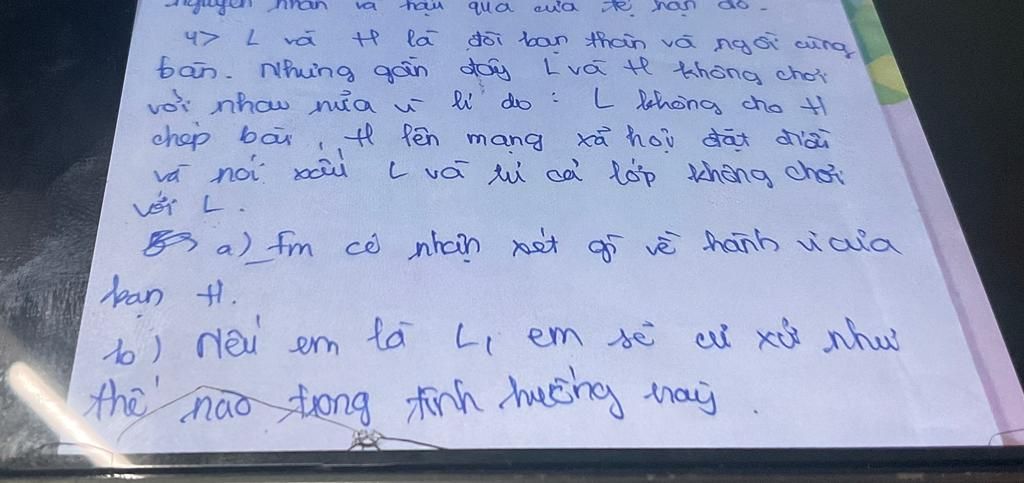 nguyên nhân và hậu quả của tệ nạn đó.
4> L và H là đôi bạn thân và ngồi cùng
bàn. Nhưng gần đây L và H không chơi
với nhau nữa vì lí do : L không cho H
chép bài, H lên mạng xã hội đặt điều
và nói xấu L và rủ cả lớp không chơi
với L.
a) Em có nhận xét gì về hành vi của
bạn H.
b) Nếu em là L, em sẽ cư xử như
thế nào trong tình huống này.